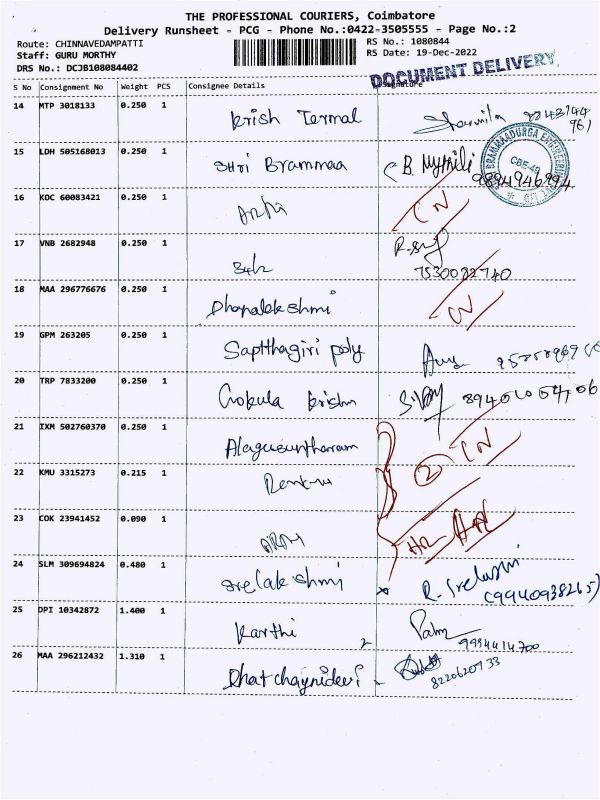 THE PROFESSIONAL COURIERS, Coimbatore
Delivery Runsheet - PCG - Phone No.:0422-3505555 - Page No.:2
Route: CHINNAVEDAMPATTI RS No.: 1080844
Staff: GURU MORTHY RS Date: 19-Dec-2022
DRS No.: DCJB108084402
DOCUMENT DELIVERY
S No Consignment No Weight PCS Consignee Details Signature
14 MTP 3018133 0.250 1 Krish Termal
15 LDH 505168013 0.250 1 SHri Brammaa B. Mythili
9894946994
BRAMMAADURGA ENGINEERING
CBE-49
16 KOC 60083421 0.250 1
17 VNB 2682948 0.250 1
7530082740
18 MAA 296776676 0.250 1 Dhanalakshmi
19 GPM 263205 0.250 1 Saptthagiri poly
20 TRP 7833200 0.250 1 Gokula Krishn
21 IXM 502760370 0.250 1 Alagusuntharam
22 KMU 3315273 0.215 1 2
23 COK 23941452 0.090 1
24 SLM 309694824 0.480 1 srelakshmi
(9940938265)
25 DPI 10342872 1.400 1 Karthi
9994414700
26 MAA 296212432 1.310 1 Dhatchaynidevi
8220620933